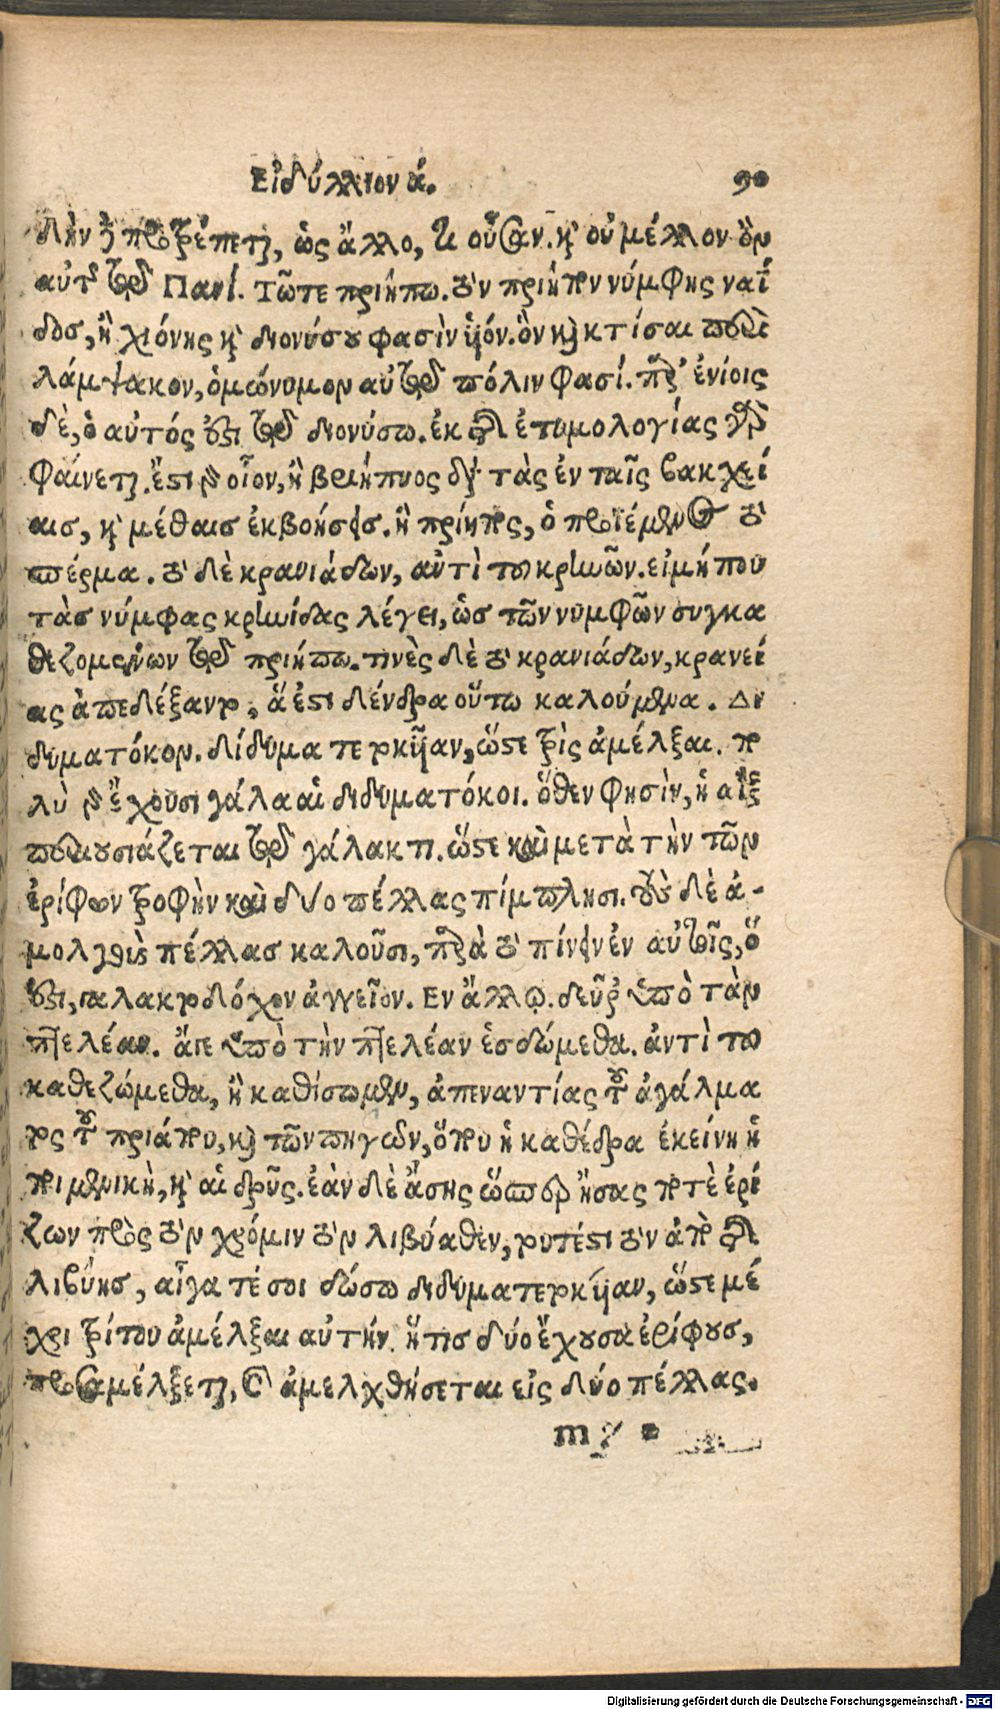 Εἰδύλλιον ά. 90
λὴν γὰρ προτρέπεται, ὡς ἄλλο, τι οὖσαν. καὶ οὐ μέλλον ὂν
αὐτὸ τῷ Πανί. Τῶτε πριήπω. τὸν πρίηπον νύμφης ναΐ
δος, ἢ χιόνης καὶ διονύσου φασὶν υἱόν. ὃν καὶ κτίσαι τὴν
λάμψακον, ὁμώνυμον αὐτῷ πόλιν φασί. παρ' ἐνίοις
δὲ, ὁ αὐτός ἐστι τῷ διονύσω. ἐκ τῆς ἐτυμολογίας
φαίνεται. ἔστι γὰρ οἷον, ἢ βριήπυος διὰ τὰς ἐν ταῖς βακχεί
αις, καὶ μέθαις ἐκβοήσεις. ἢ πρίηπος, ὁ προϊέμενος τὸ
σπέρμα. τὸ δὲ κρανιάδων, αντὶ του κρηνῶν. εἰ μή που
τὰς νύμφας κρηνίδας λέγει, ὡς τῶν νυμφῶν συγκα
θεζομένων τῷ πριήπω. τινὲς δὲ τὸ κρανιάδων, κρανεί
ας ἀπεδέξαντο, ἅ ἐστι δένδρα οὕτω καλούμενα. Δι
δυματόκον. δίδυμα τετοκυῖαν, ὥστε τρὶς ἀμέλξαι. πο
λὺ γὰρ ἔχουσι γάλα αἱ διδυματόκοι. ὅθεν φησὶν, ἡ αἲξ
πλουσιάζεται τῷ γάλακτι. ὥστε καὶ μετὰ τὴν τῶν
ἐρίφων τροφὴν καὶ δύο πέλλας πίμπλησι. τοὺς δὲ ἀ-
μολγοὺς πέλλας καλοῦσι, παρὰ τὸ πίνειν ἐν αὐτοῖς, ὅ
ἐστι, γαλακτοδόχον ἀγγεῖον. Εν ἄλλῳ. δεῦρ' ὑπὸ τὰν
πτελέαν. ἄγε ὑπὸ τὴν πτελέαν ἑσδώμεθα. ἀντὶ του
καθεζώμεθα, ἢ καθίσωμεν, ἀπεναντίας τοῦ ἀγάλμα
τος τοῦ πριάπου, καὶ τῶν πηγῶν, ὅπου ἡ καθέδρα ἐκείνη ἡ
ποιμενικὴ, καὶ αἱ δρῦς. ἐὰν δὲ ἄσης ὥσπερ ἦσας ποτὲ ἐρί
ζων πρὸς τὸν χρόμιν τὸν λιβύαθεν, τουτέστι τὸν ἀπὸ τῆς
λιβύης, αἶγα τέ σοι δώσω διδυματετοκυῖαν, ὥστε μέ
χρι τρίτου ἀμέλξαι αὐτήν. ἥτις δύο ἔχουσα ἐρίφους,
προσαμέλξεται, καὶ ἀμελχθήσεται εἰς δύο πέλλας.
m
Digitalisierung gefördert durch die Deutsche Forschungsgemeinschaft - DFG